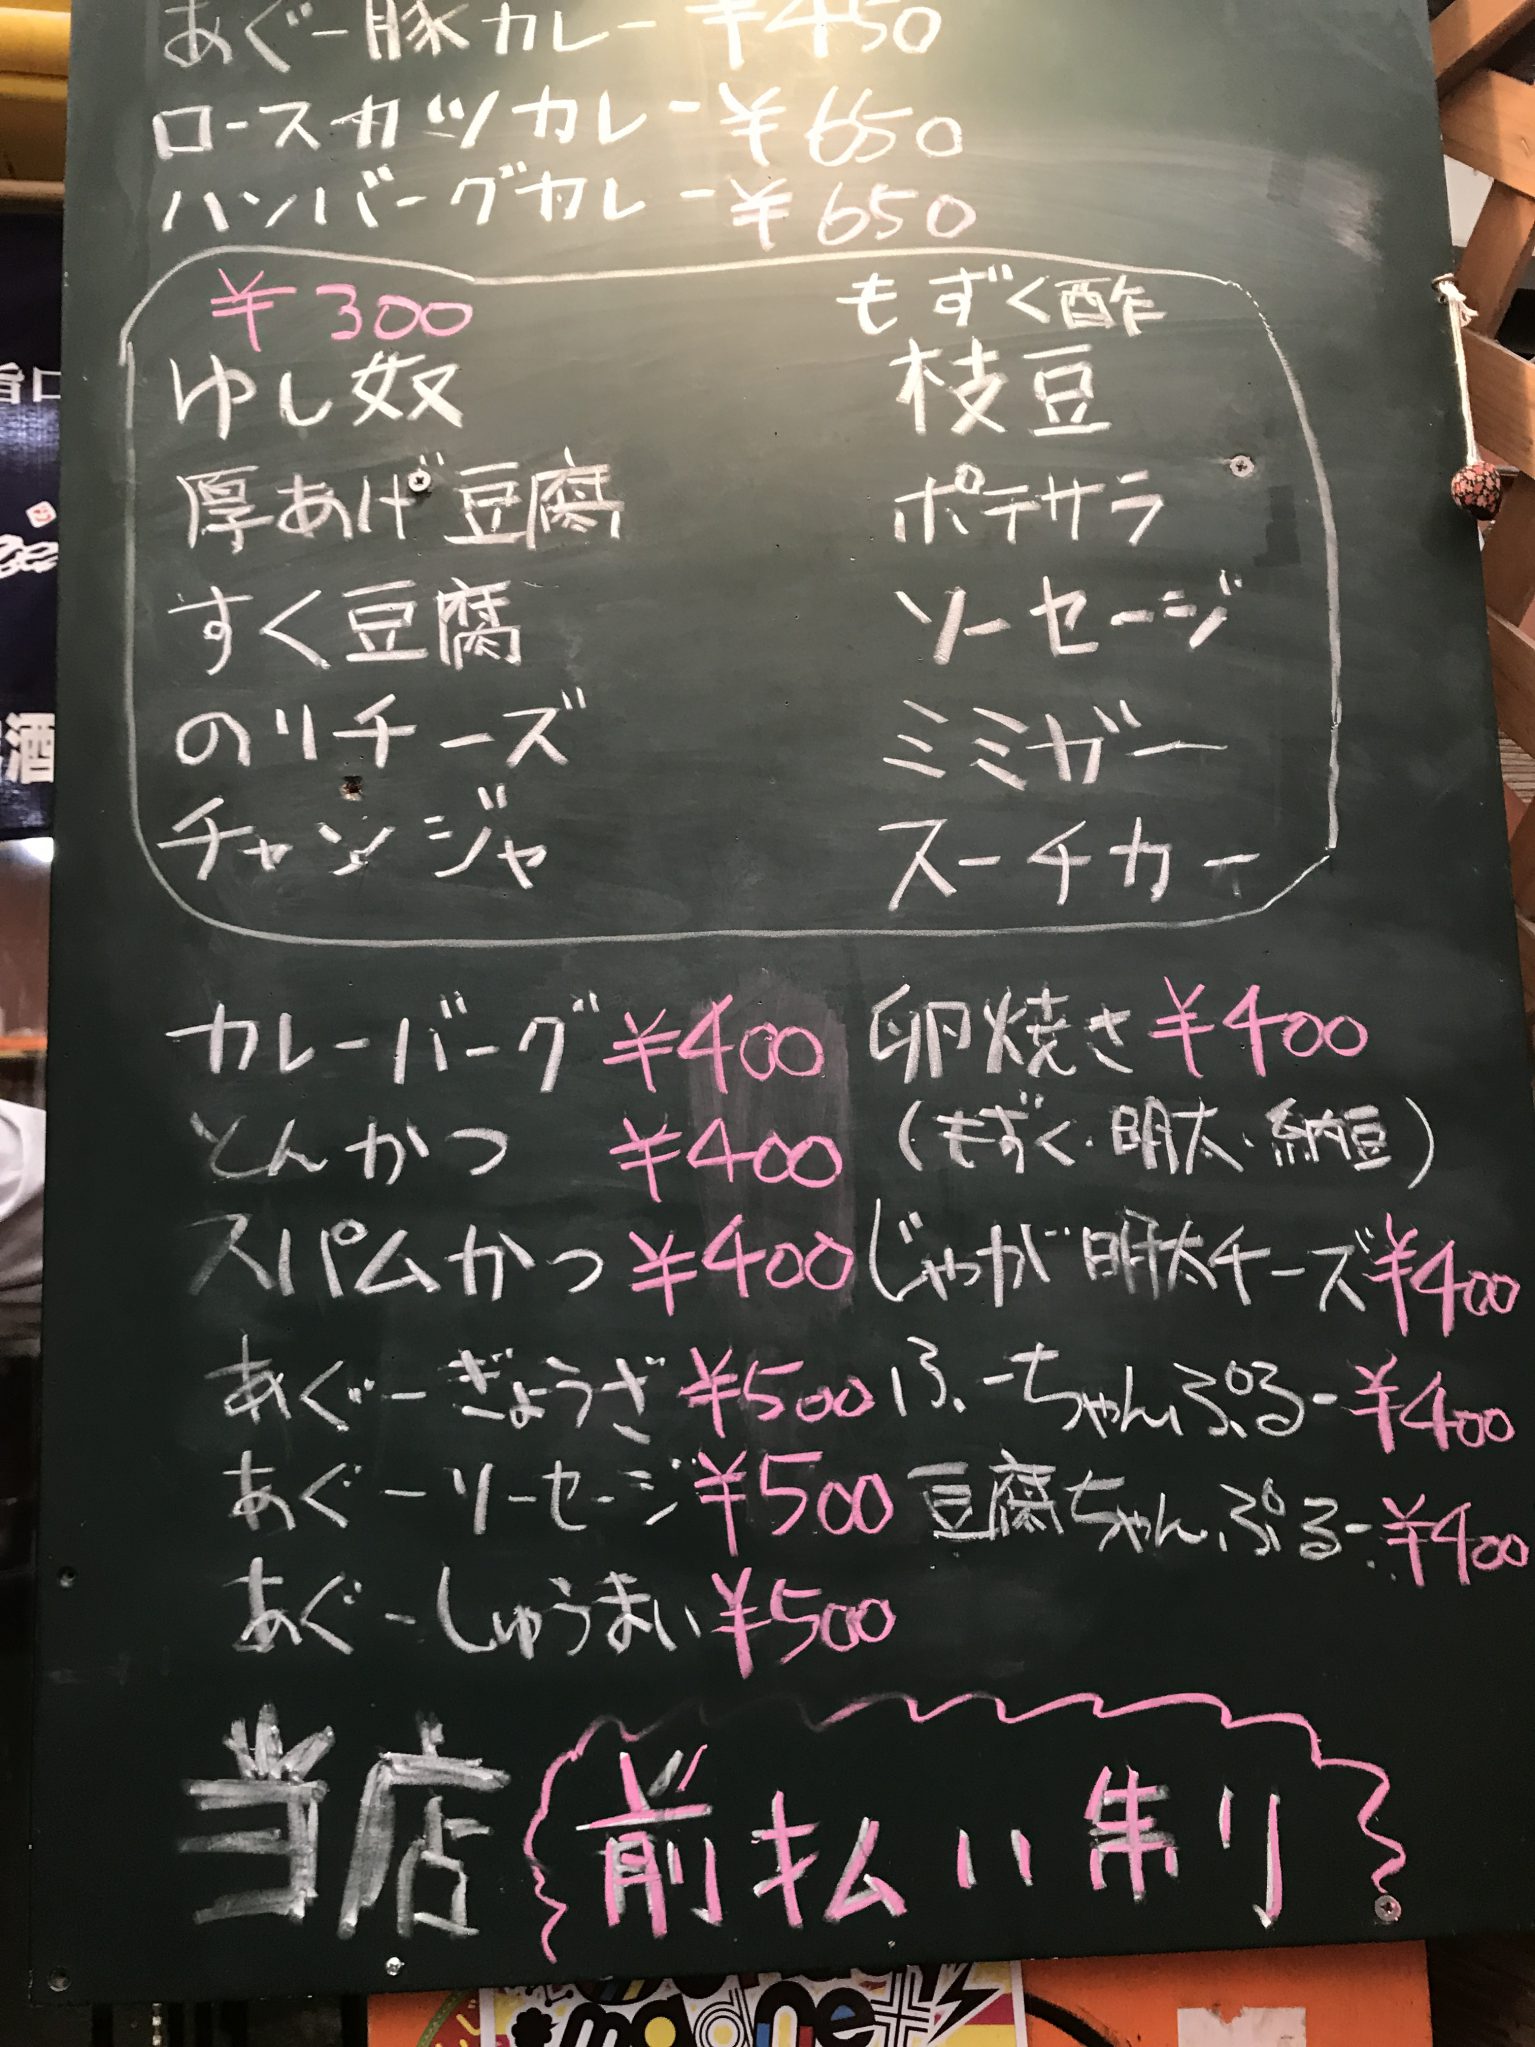 あぐー豚カレー ¥450
ロースカツカレー ¥650
ハンバーグカレー ¥650
¥300
ゆし奴
厚あげ豆腐
すく豆腐
のりチーズ
チャンジャ
もずく酢
枝豆
ポテサラ
ソーセージ
ミミガー
スーチカー
カレーバーグ ¥400
とんかつ ¥400
スパムかつ ¥400
あぐーぎょうざ ¥500
あぐーソーセージ ¥500
あぐーしゅうまい ¥500
卵焼き ¥400
(もずく・明太・納豆)
じゃが明太チーズ ¥400
ふーちゃんぷるー ¥400
豆腐ちゃんぷるー ¥400
当店 前払い制り
旨口
酒